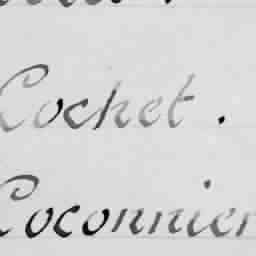 Cochet.
Coconnier